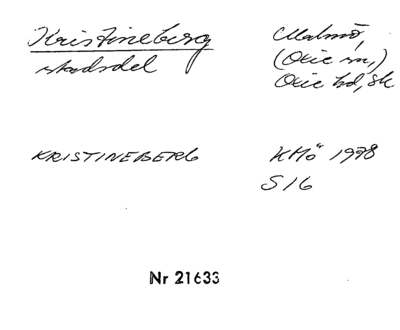 Kristineberg
stadsdel
Malmö,
(Oxie sn,)
Oxie hd, Sk
KRISTINEBERG
KMÖ 1978
S 16
Nr 21633